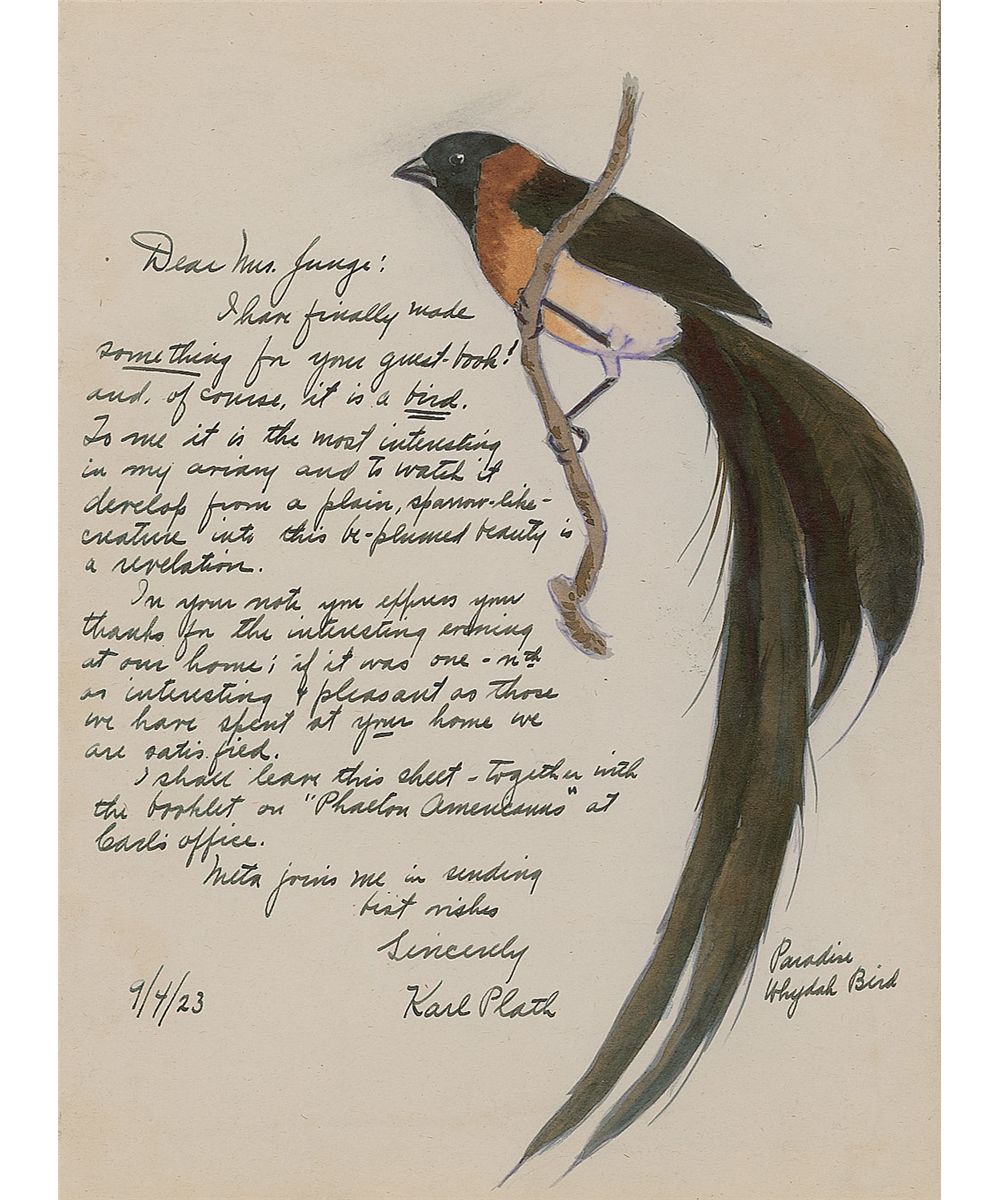 Dear Mrs. Junge:
I have finally made
something for your guest-book!
and, of course, it is a bird.
To me it is the most interesting
in my aviary and to watch it
develop from a plain, sparrow-like-
creature into this be-plumed beauty is
a revelation.
In your note you express your
thanks for the interesting evening
at our home; if it was one-nth
as interesting & pleasant as those
we have spent at your home we
are satisfied.
I shall leave this sheet - together with
the booklet on "Phaeton Americanus" at
Carl's office.
Meta joins me in sending
best wishes
Sincerely
Karl Plath
9/4/23
Paradise
Whydah Bird